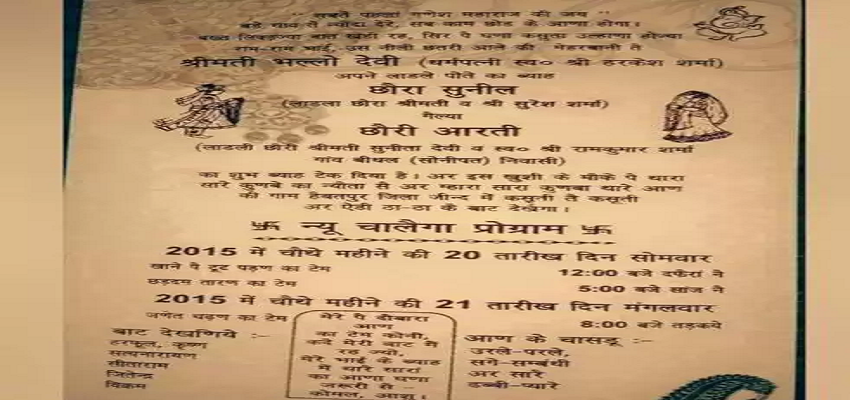 "सबते पहल्यां गणेश महाराज की जय"
बड़े चाव तै न्यौदा देरे, सब काम छोड के आणा होगा।
बख्त लिकड़ज्या बात खड़ी रह, सिर पै घणा कसूता उल्हाणा होज्या
राम-राम भाई, उस नीली छतरी आले की मेहरबानी तै
श्रीमती भल्लो देवी (धर्मपत्नी स्व० श्री हरकेश शर्मा)
अपने लाडले पोते का ब्याह
छौरा सुनील
(लाडला छौरा श्रीमती व श्री सुरेश शर्मा)
गैल्या
छौरी आरती
(लाडली छौरी श्रीमती सुनीता देवी व स्व० श्री रामकुमार शर्मा
गांव बीधल (सोनीपत) निवासी)
का शुभ ब्याह टेक दिया है। अर इस खुशी के मौके पै थारा
सारे कुणबे का न्यौता सै अर म्हारा सारा कुणबा थारे आण
की गाम हैबतपुर जिला जीन्द में कसूती तै कसूती
अर ऐडी ठा-ठा कै बाट देखैगा।
卐 न्यू चालैगा प्रोग्राम 卐
2015 में चौथे महीने की 20 तारीख दिन सोमवार
खाने पै टूट पड़ण का टेम 12:00 बजे दफैरां नै
छड़दम तारण का टेम 5:00 बजे सांज नै
2015 में चौथे महीने की 21 तारीख दिन मंगलवार
जणेत चढ़ण का टेम 8:00 बजे तड़कये
बाट देखणिये :-
हरफूल, कृष्ण
सत्यनारायण
सीताराम
जितेन्द्र
विक्रम
मेरे पै दौबारा
आण
का टेम कोनी,
कदे मेरी बाट मै
रह ज्यो,
मेरे भाई के ब्याह
में थारै सारां
का आणा घणा
जरूरी सै -
कोमल, आशु।
आण के चासडू :-
उरले-परले,
सगे-सम्बंधी
अर सारे
ढब्बी-प्यारे